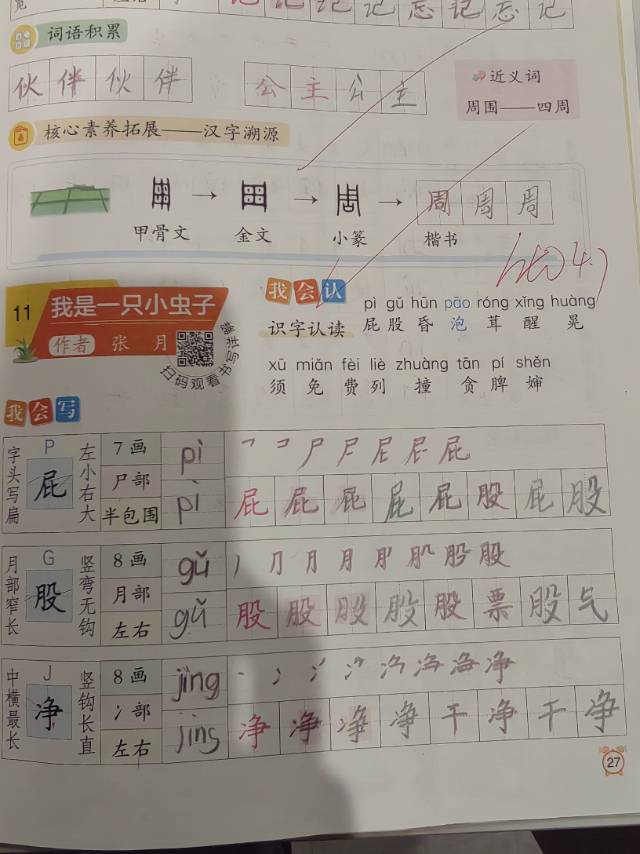 记 记 记 记 忘 记 忘 记
词语积累
伙 伴 伙 伴 公 主 公 主
近义词
周围——四周
核心素养拓展——汉字溯源
甲骨文 → 金文 → 小篆 → 楷书
周 周 周
11 我是一只小虫子
作者 张 月
扫码观看 书写讲解
我会认
识字认读
pì gǔ hūn pāo róng xǐng huàng
屁 股 昏 泡 茸 醒 晃
xū miǎn fèi liè zhuàng tān pí shěn
须 免 费 列 撞 贪 牌 婶
我会写
字头写扁
P
屁
左小右大
7画
尸部
半包围
pì
pì
屁 屁 屁 屁 屁 股 屁 股
月部窄长
G
股
竖弯无钩
8画
月部
左右
gǔ
gǔ
股 股 股 股 股 票 股 气
中横最长
J
净
竖钩长直
8画
冫部
左右
jìng
jìng
净 净 净 净 干 净 干 净
27